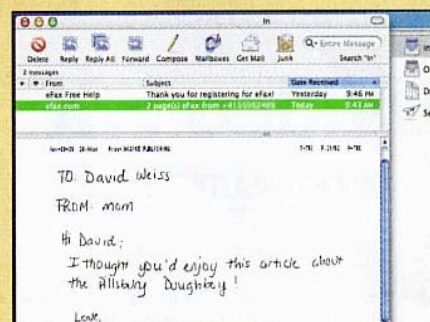 In
Delete Reply Reply All Forward Compose Mailboxes Get Mail Junk
Q- Entire Message
Search "In"
2 messages
From Subject Date Received
eFax Free Help Thank you for registering for eFax! Yesterday 9:46 PM
efax.com 2 page(s) eFax from +4155962486 Today 9:43 AM
TO: David Weiss
FROM: mom
Hi David;
I thought you'd enjoy this article about
the Pillsbury Doughboy!
Love,
In